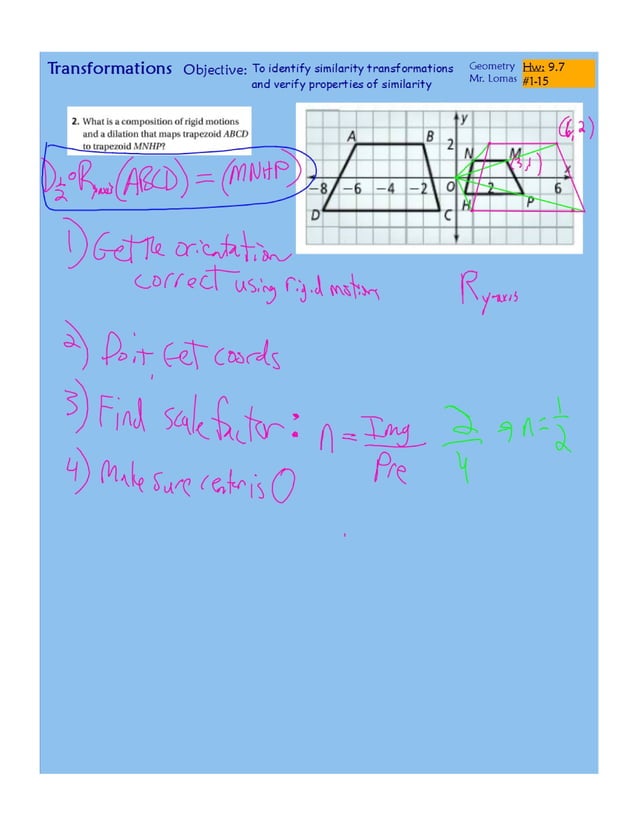 Transformations Objective: To identify similarity transformations
and verify properties of similarity
Geometry
Mr. Lomas
Hw: 9.7
#1-15
2. What is a composition of rigid motions
and a dilation that maps trapezoid ABCD
to trapezoid MNHP?
D½∘Ry-axis(ABCD) = (MNHP)
y
(6,2)
A B 2 N M (3,1)
x
-8 -6 -4 -2 O 2 6
D C H P
1) Get the orientation
correct using rigid motions
Ry-axis
2) Do it, Get coords
3) Find scale factor: n = Img/Pre 2/4 → n = 1/2
4) Make sure center is O